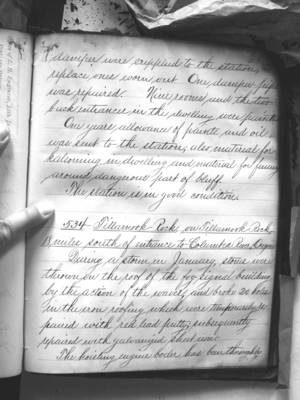 damper were supplied to the station
replace ones worn out One damper
was repaired. Nine rooms and the two
back entrances in the dwelling were painted
One years allowance of paints and oil
was sent to the station; also material for
kalsomining in dwelling and material for fencing
around dangerous part of bluff.
The station is in good condition.
534 Tillamook Rock, on Tillamook Rock,
miles south of entrance to Columbia River, Oregon
During a storm in January, stones were
thrown on the roof of the fog signal building
by the action of the waves, and broke 20 holes
in the iron roofing which were temporarily re-
paired with red lead putty; subsequently
repaired with galvanized sheet iron.
The hoisting engine boiler has been thoroughly